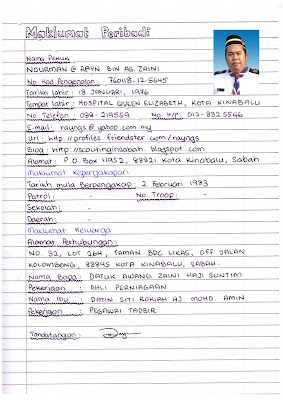 Maklumat Peribadi
Nama Penuh :
NOURMAN @ RAYN BIN AG. ZAINI
No. Kad Pengenalan : 760118-12-5645
Tarikh lahir : 18 JANUARI, 1976
Tempat lahir : HOSPITAL QUEEN ELIZABETH, KOTA KINABALU
No. Telefon : 088-219559 No. H/P : 012-832 5546
E-mail : rayngs@yahoo.com.my
Url : http://profiles.friendster.com/rayngs
Blog : http://scoutinginsabah.blogspot.com
Alamat : P.O. Box 11952, 88821 Kota Kinabalu, Sabah
Maklumat Kepengakapan
Tarikh mula Berpengakap : 2 Februari 1983
Patrol : - No. Troop : -
Sekolah : -
Daerah : -
Maklumat Keluarga
Alamat Perhubungan :
NO. 32, LOT 264, TAMAN BDC LIKAS, OFF JALAN
KOLOMBONG, 88845 KOTA KINABALU, SABAH.
Nama Bapa : DATUK AWANG ZAINI HAJI SUNTIM
Pekerjaan : AHLI PERNIAGAAN
Nama Ibu : DATIN SITI ROKIAH HJ. MOHD. AMIN
Pekerjaan : PEGAWAI TADBIR
Tandatangan :